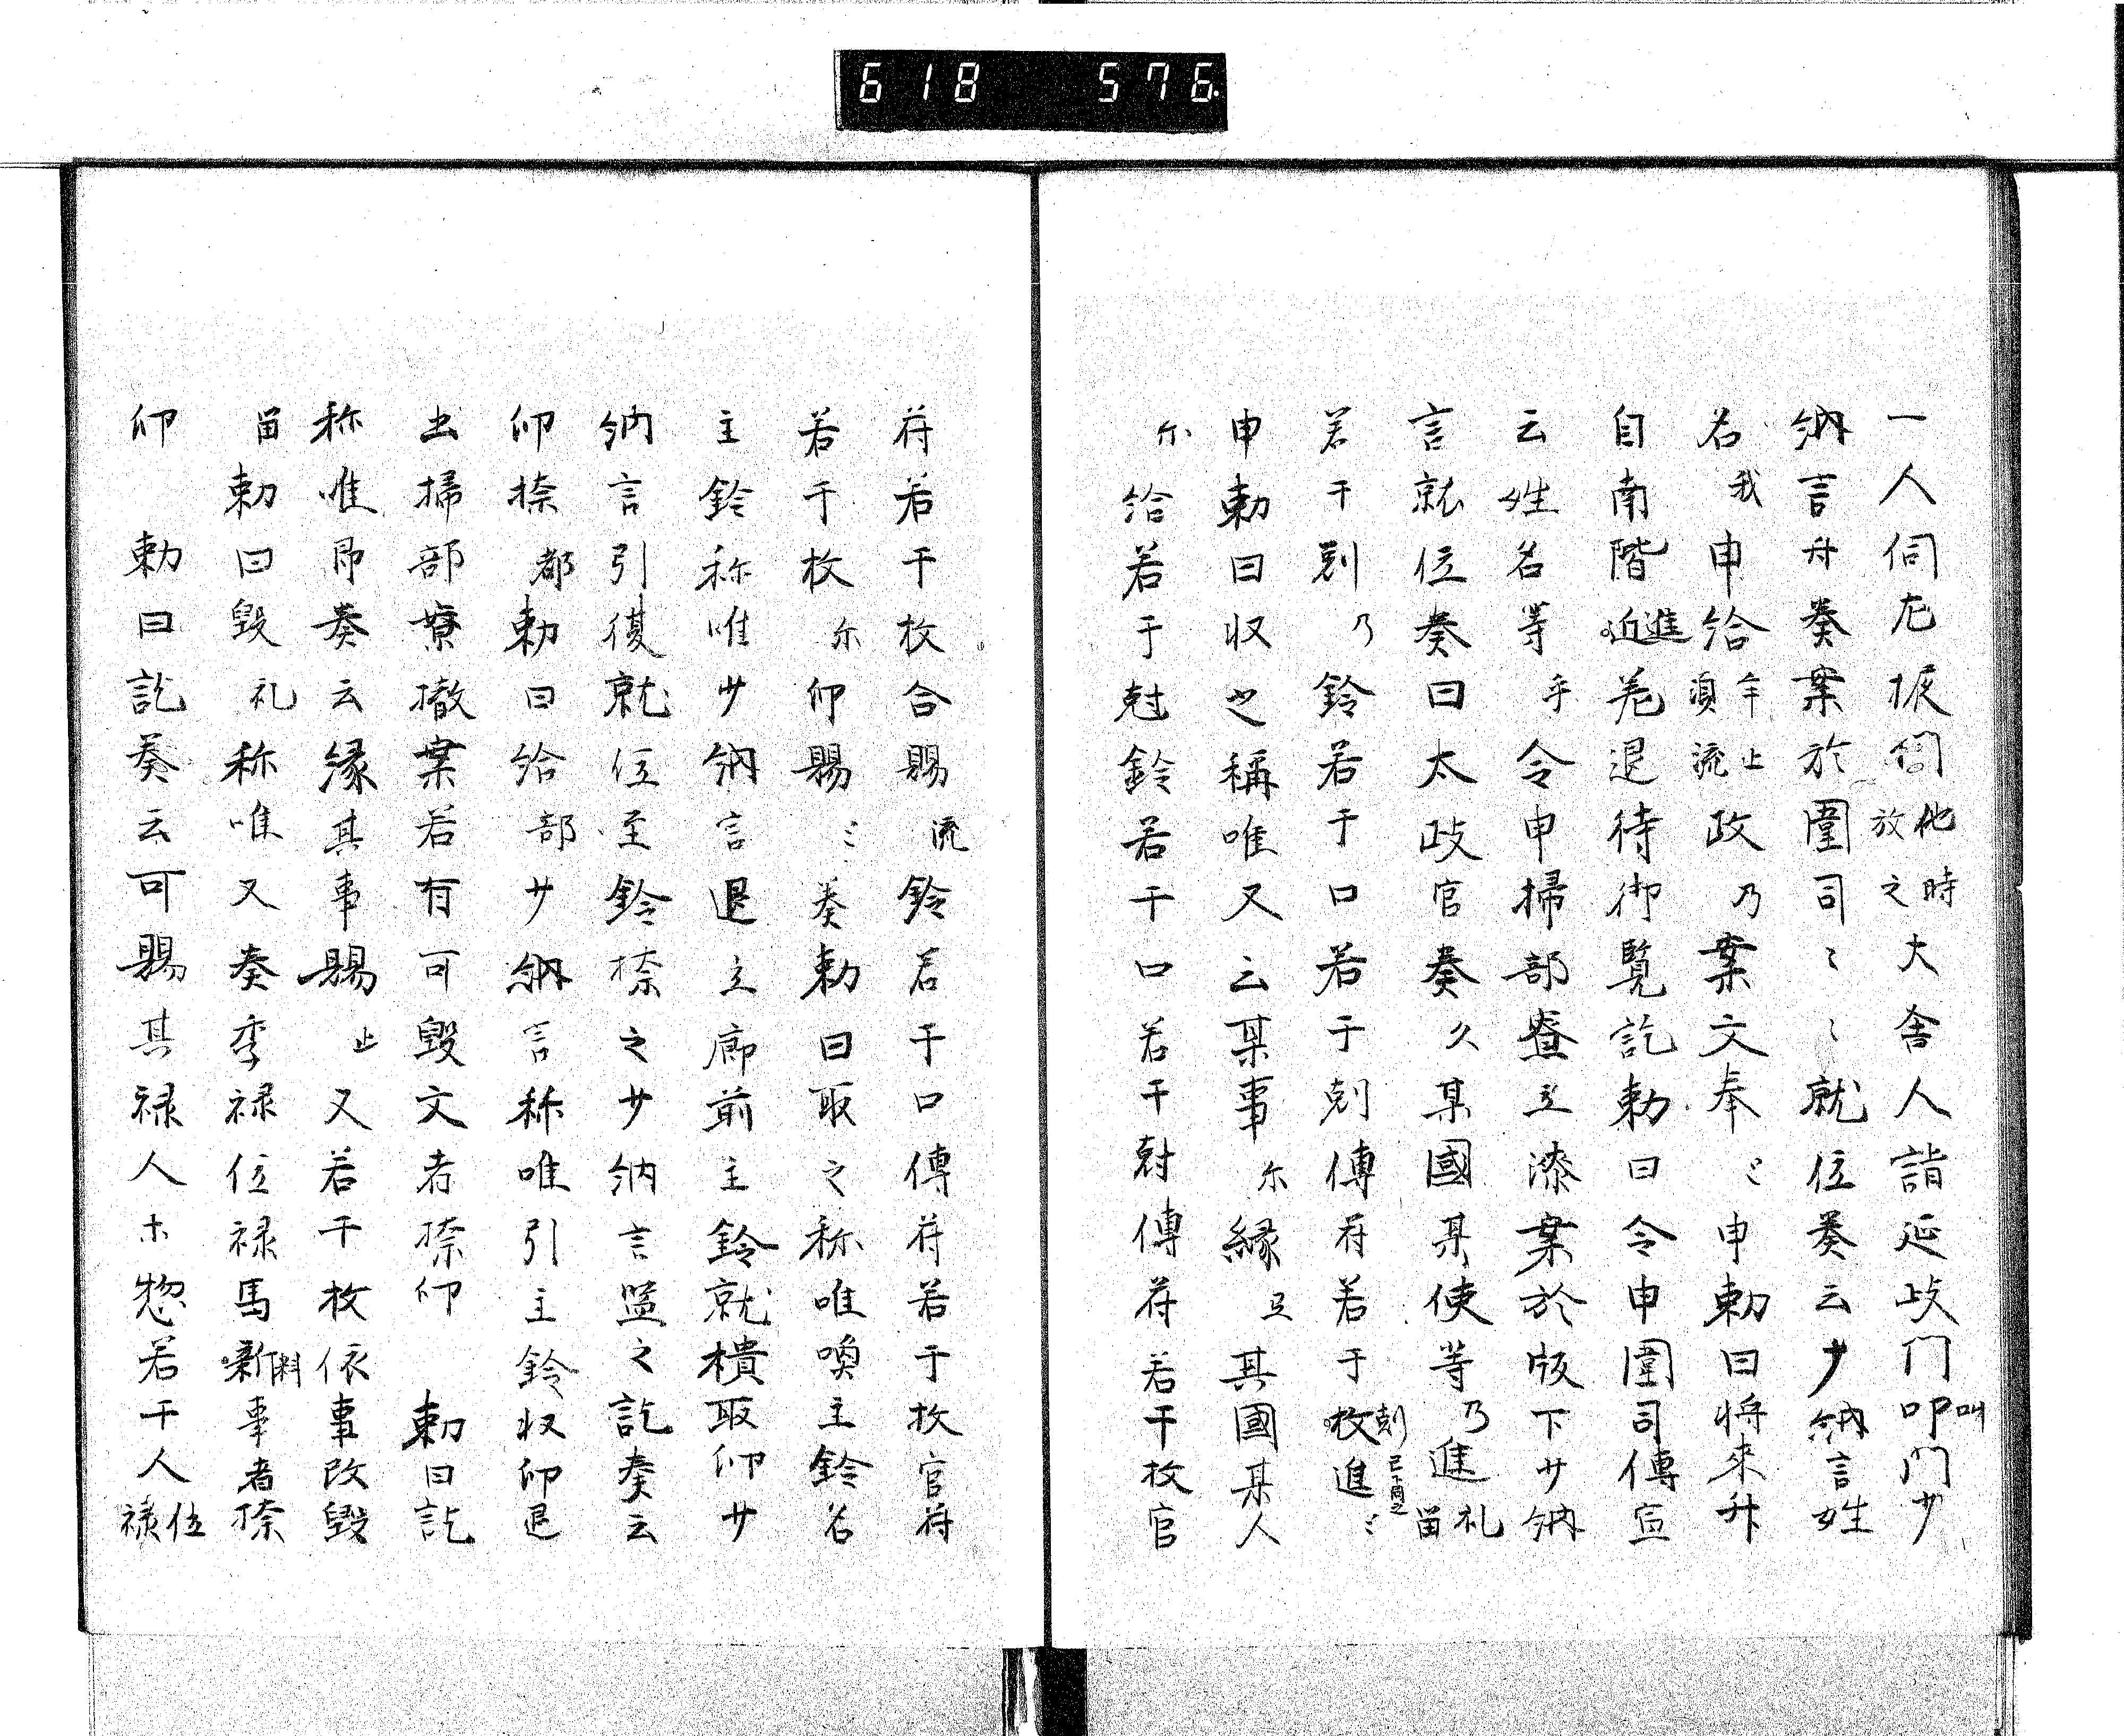 618 576.
一人伺左掖門他時放之大舎人詣延政門叩門叫少
納言舛奏案於圍司〻〻就位奏云少納言姓
名我申給年須止流政乃案文奉〻申勅曰将来舛
自南階近進苑退待御覧訖勅曰令申圍司傳宣
云姓名等乎令申掃部登立漆案於版下少納
言就位奏曰太政官奏久某國某使等乃進礼留
若干剋乃鈴若干口若干剋傳符若干枚剋進〻
申勅曰収之稱唯又云某事尓縁豆其國某人
尓給若干尅鈴若干口若干尅傳符若干枚官
符若干枚合賜流鈴若干口傳符若干枚官符
若干枚尓仰賜〻奏勅曰取之称唯喚主鈴名
主鈴称唯少納言退立廊前主鈴就樻取仰少
納言引復就位至鈴捺之少納言監之訖奏云
仰捺都勅曰給部少納言称唯引主鈴収仰退
出掃部寮撤案若有可毀文者捺仰 勅曰訖
称唯即奏云縁其事賜止又若干枚依事改毀
留勅曰毀礼称唯又奏季禄位禄馬新料事者捺
仰 勅曰訖奏云可賜其禄人木惣若干人位禄